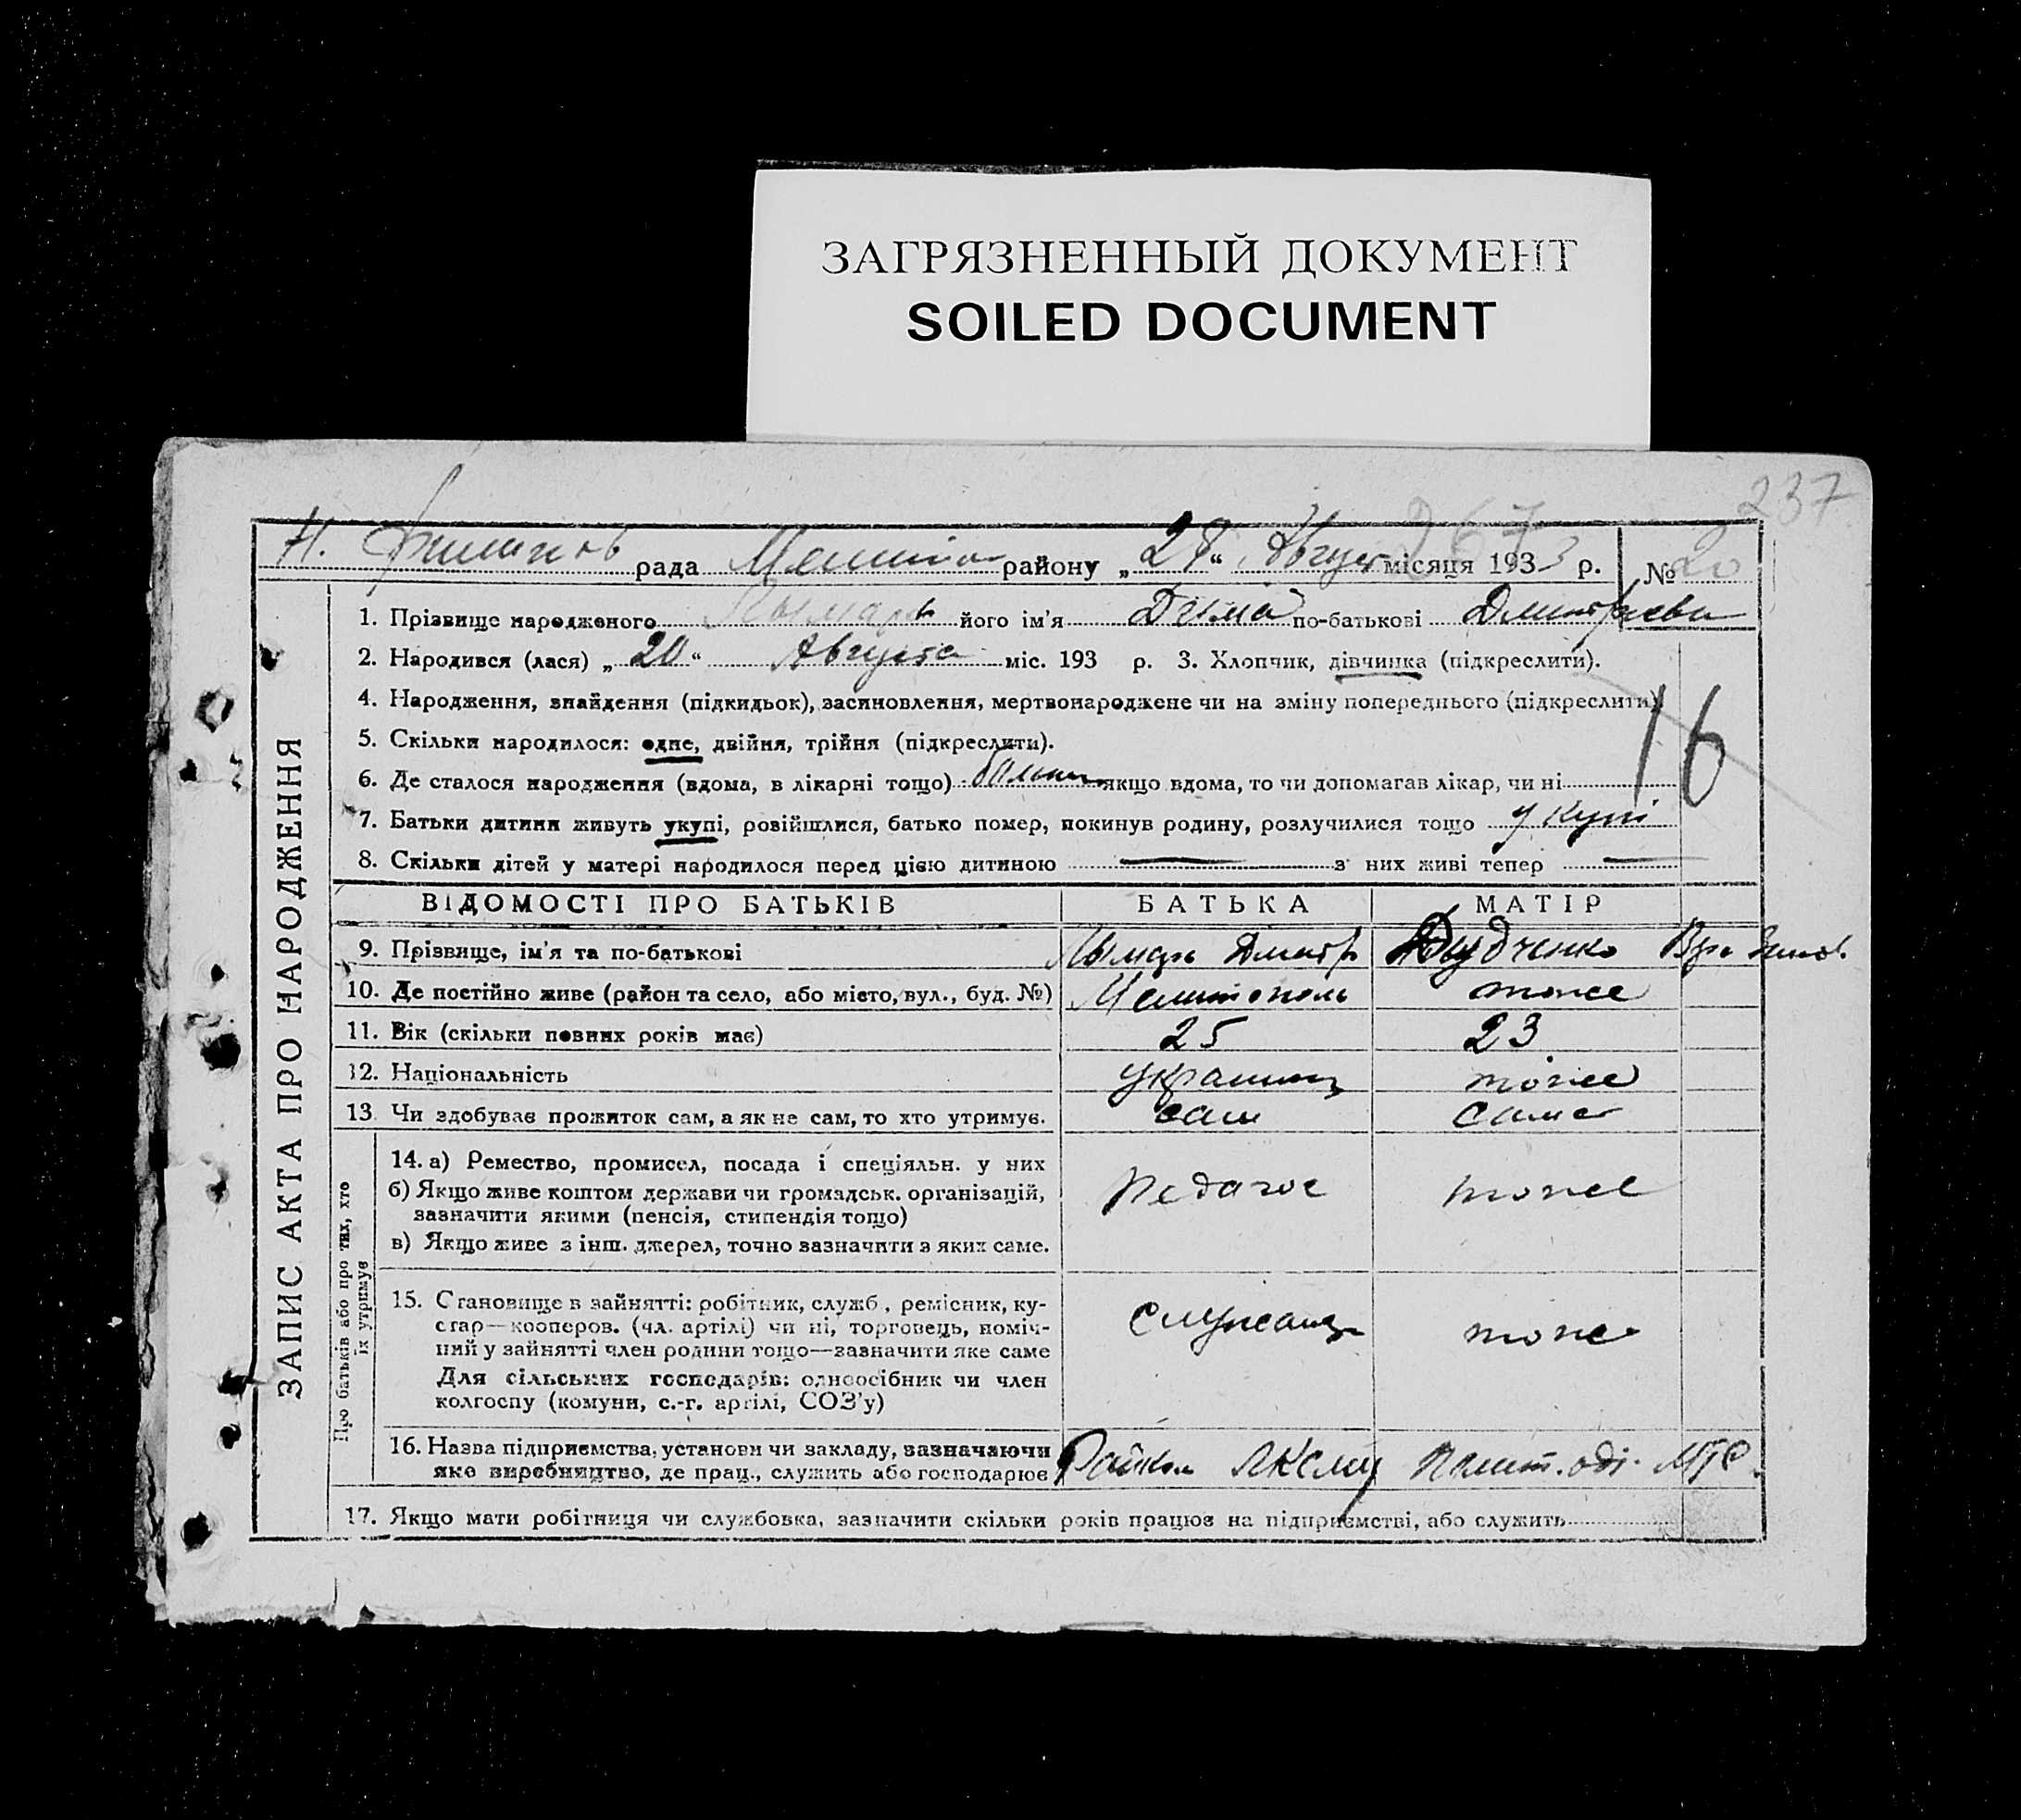 ЗАГРЯЗНЕННЫЙ ДОКУМЕНТ
SOILED DOCUMENT
237
267
Н. рада района району „28“ Август місяця 1933 р. № 20
ЗАПИС АКТА ПРО НАРОДЖЕННЯ
1. Прізвище народженого Лымарь його ім'я по-батькові
2. Народився (лася) „20“ Августа міс. 193 р. 3. Хлопчик, дівчинка (підкреслити).
4. Народження, знайдення (підкидьок), засиновлення, мертвонароджене чи на зміну попереднього (підкреслити)
16
5. Скільки народилося: одне, двійня, трійня (підкреслити).
6. Де сталося народження (вдома, в лікарні тощо) якщо вдома, то чи допомагав лікар, чи ні
7. Батьки дитини живуть укупі, розійшлися, батько помер, покинув родину, розлучилися тощо у купі
8. Скільки дітей у матері народилося перед цією дитиною — з них живі тепер —
ВІДОМОСТІ ПРО БАТЬКІВ БАТЬКА МАТІР
9. Прізвище, ім'я та по-батькові Лымарь Дмитр Дудченко
10. Де постійно живе (район та село, або місто, вул., буд. №) Мелитополь тоже
11. Вік (скільки повних років має) 25 23
12. Національність украинец тоже
13. Чи здобуває прожиток сам, а як не сам, то хто утримує. сам сама
Про батьків або про тих, хто їх утримує
14. а) Ремество, промисел, посада і спеціяльн. у них
б) Якщо живе коштом держави чи громадськ. організацій,
зазначити якими (пенсія, стипендія тощо) Педагог тоже
в) Якщо живе з інш. джерел, точно зазначити з яких саме.
15. Становище в зайнятті: робітник, служб., ремісник, ку-
стар—кооперов. (чл. артілі) чи ні, торговець, поміч- служащ тоже
ний у зайнятті член родини тощо—зазначити яке саме
Для сільських господарів: одноосібник чи член
колгоспу (комуни, с.-г. артілі, СОЗ'у)
16. Назва підприємства, установи чи закладу, зазначаючи
яке виробництво, де прац., служить або господарює Райком ЛКСМУ МТС
17. Якщо мати робітниця чи службовка, зазначити скільки років працює на підприємстві, або служить